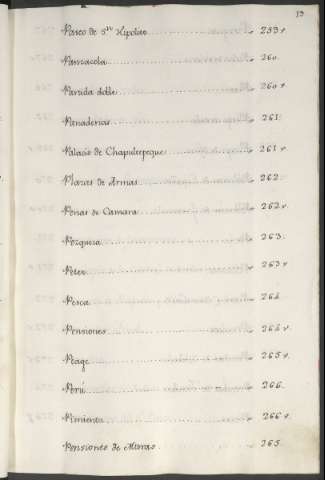 13
Paseo de Sn Hipolito 259v
Parracola 260.
Partida doble 260v
Panaderias 261.
Palacio de Chapultepeque 261v
Plazas de Armas 262.
Penas de Camara 262v.
Pesquera 263.
263v
Pesca 264.
Pensiones 264v.
Peage 265v.
Perú 266.
Pimienta 266v.
Pensiones de Mesas 265